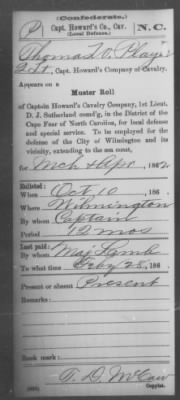 (Confederate.)
P Capt. Howard's Co., Cav. N.C.
(Local Defence.)
Thomas L. O. Player
2 Lt, Capt. Howard's Company of Cavalry.
Appears on a
Muster Roll
of Captain Howard's Cavalry Company, 1st Lieut.
D. J. Sutherland com'd'g, in the District of the
Cape Fear of North Carolina, for local defense
and special service. To be employed for the
defense of the City of Wilmington and its
vicinity, extending to the sea coast,
for Mch & Apr, 1862
Enlisted:
When Oct 10, 186 .
Where Wilmington
By whom Captain
Period 12 mos
Last paid:
By whom Maj Lamb
To what time Feby 28, 186 .
Present or absent Present
Remarks:
Book mark:
T. D. McCaw
Copyist.